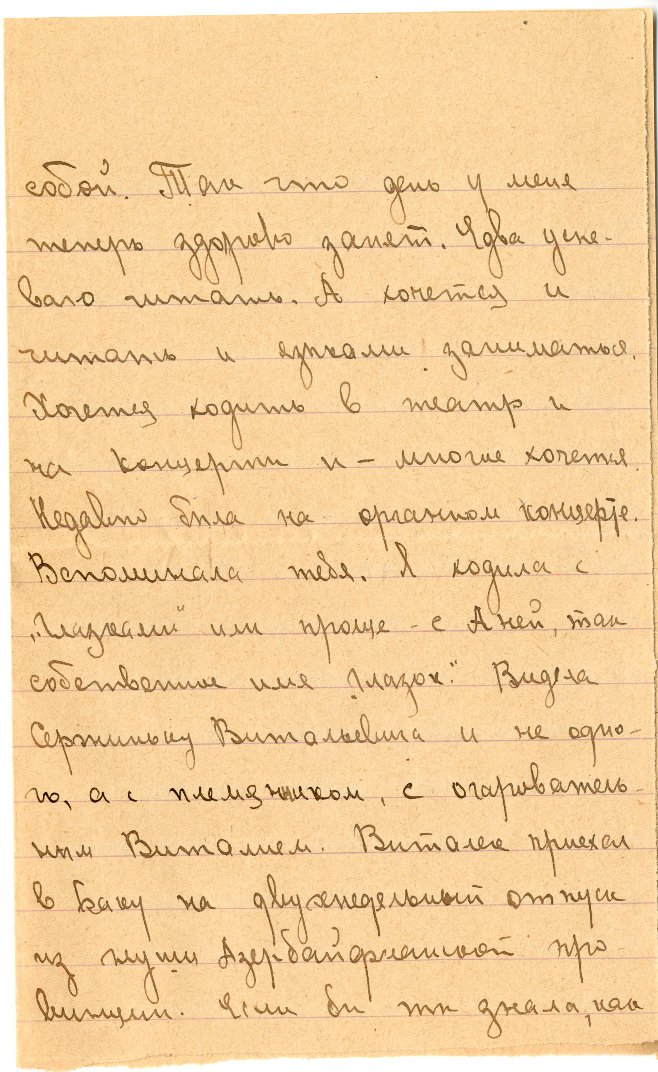 собой. Так что день у меня
теперь здорово занят. Едва успе-
ваю читать. А хочется и
читать и языками заниматься.
Хочется ходить в театр и
на концерты и – многое хочется.
Недавно была на органном концерте.
Вспоминала тебя. Я ходила с
„Глазками" или проще - с Аней, так
собственное имя „Глазок". Видела
Сержиньку Витальевича и не одно-
го, а с племянником, с очарователь-
ным Виталием. Виталек приехал
в Баку на двухнедельный отпуск
из глуши Азербайджанской про-
винции. Если бы ты знала, как